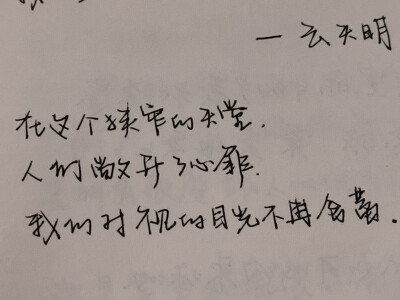 — 云天明
在这个狭窄的天堂.
人们敞开了心扉.
我们对视的目光不再含蓄.